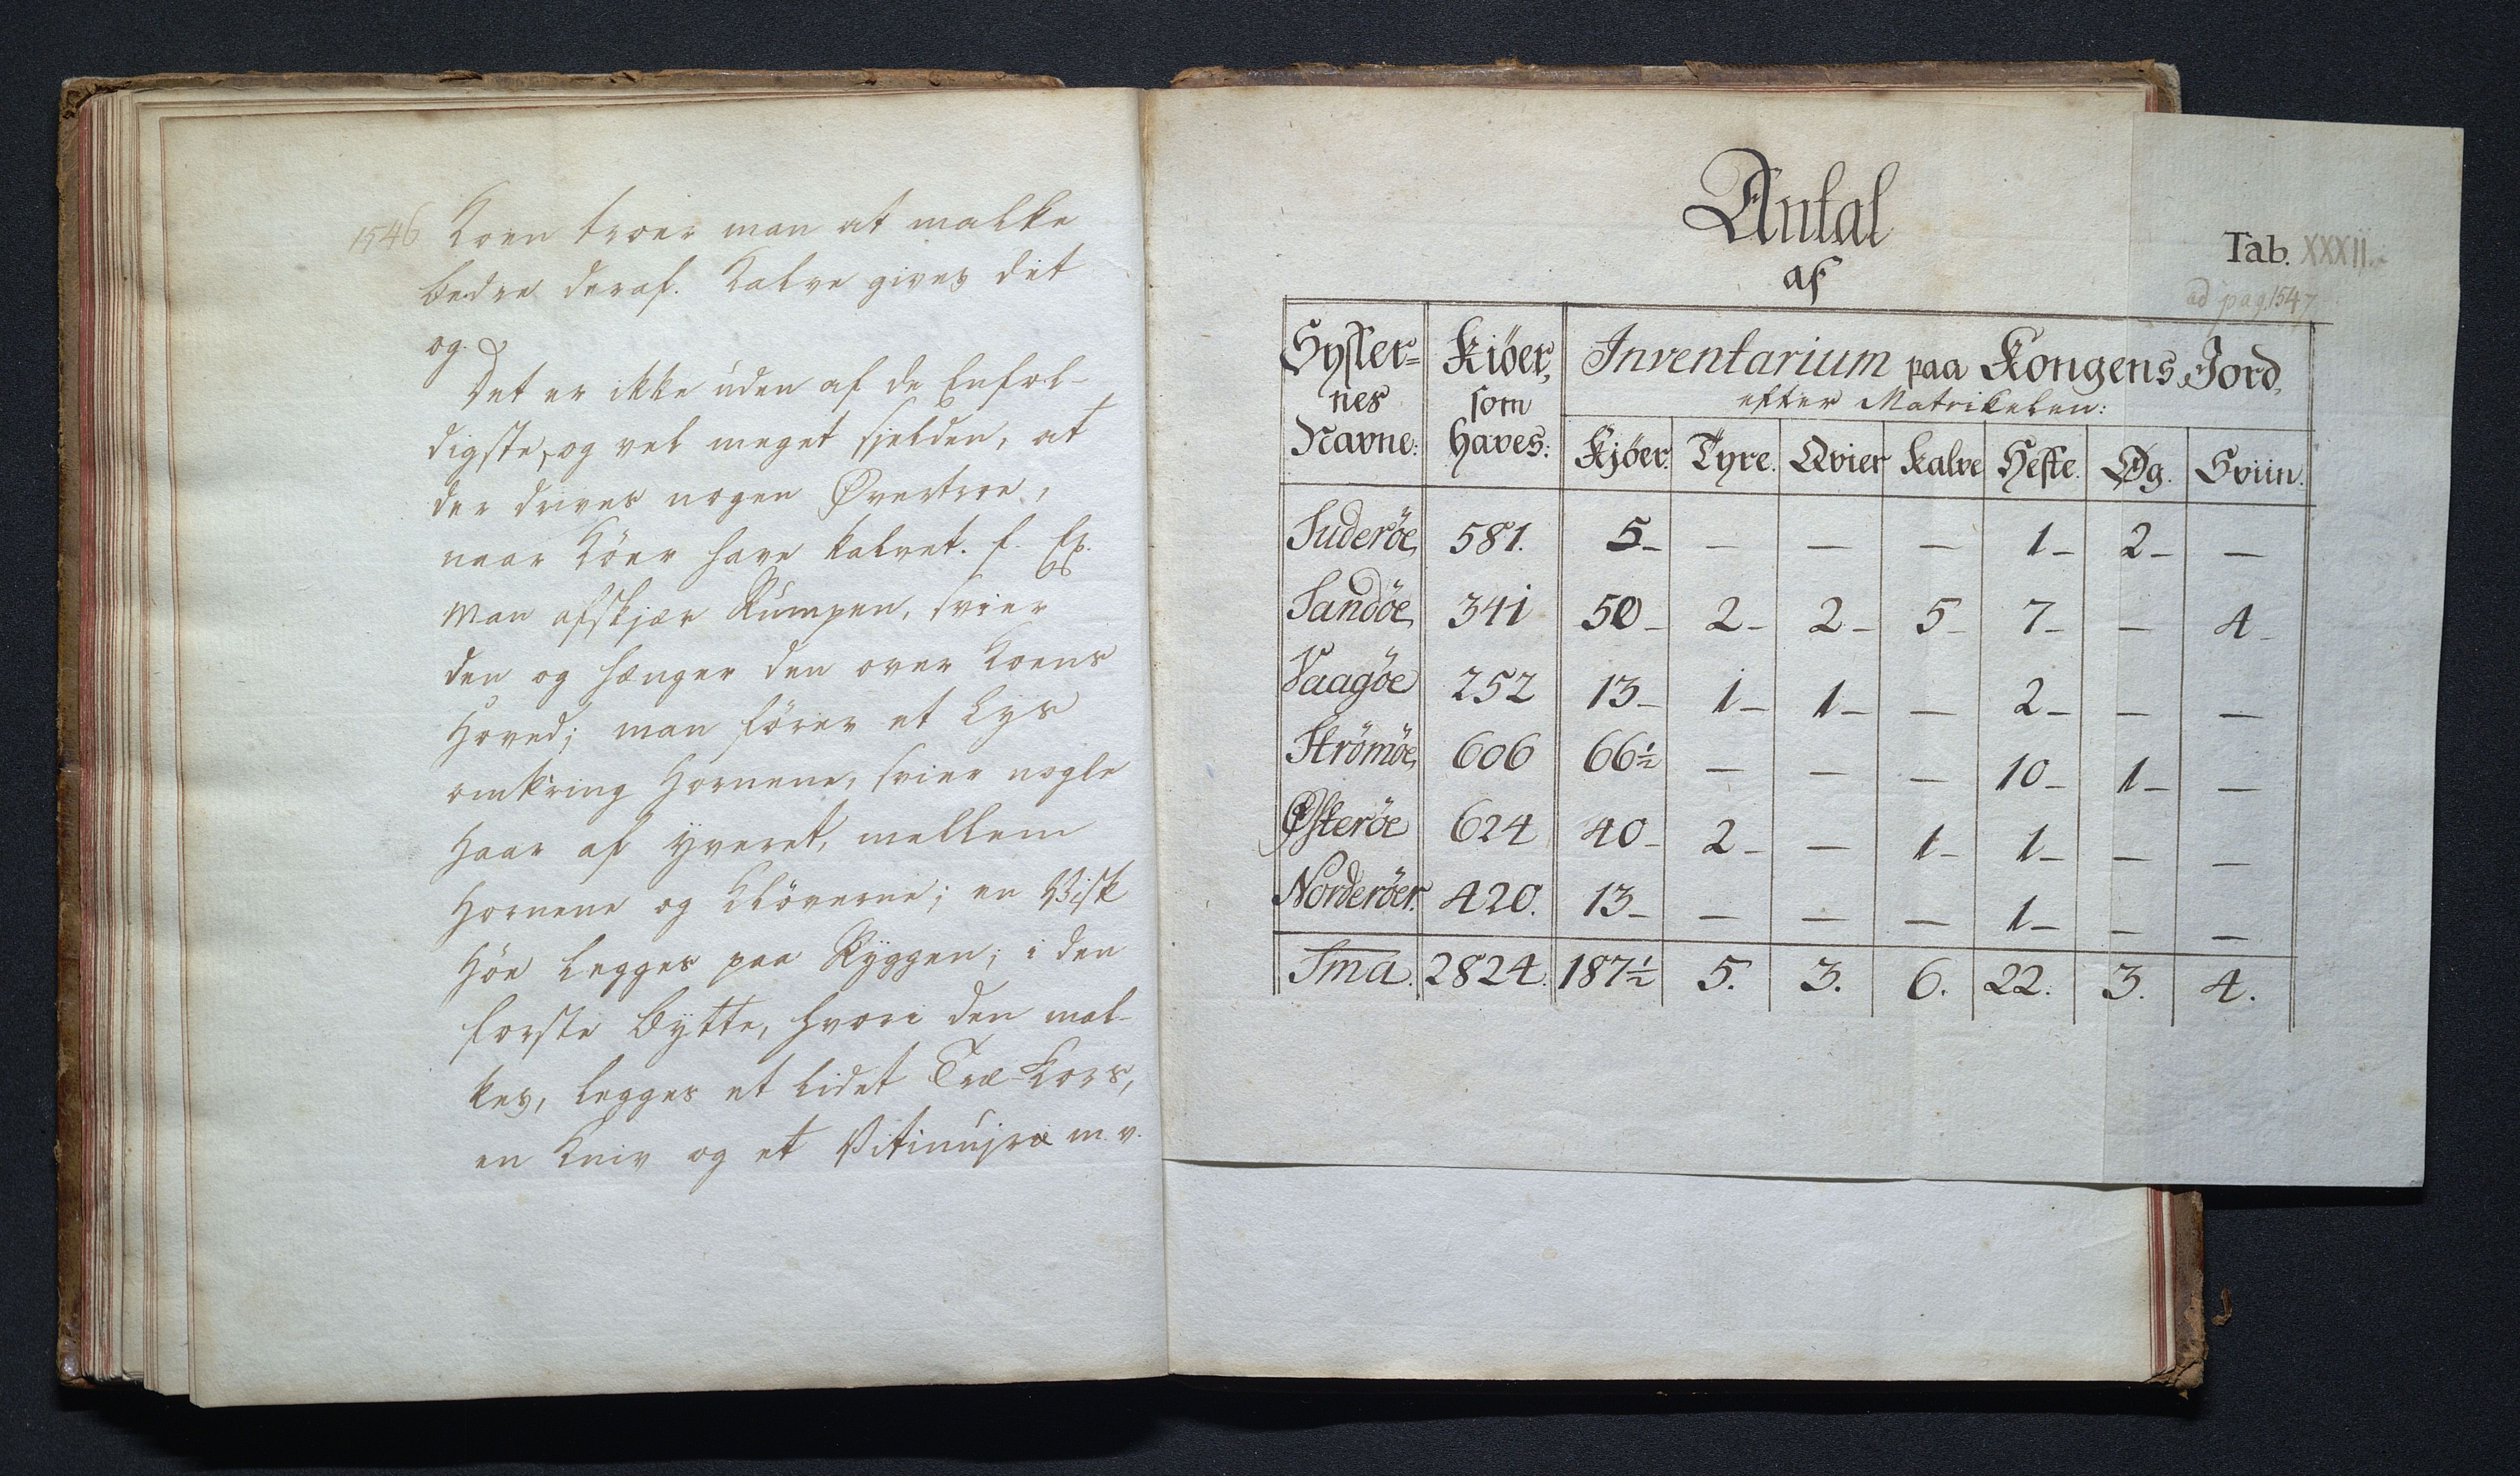 1546 Koen troer man at malke
bedre deraf. Kalve gives det
og.
Det er ikke uden af de Enfol-
digste, og vel meget sjelden, at
der drives nogen Overtroe,
naar Köer have kalvet. f. Ex.
Man afskjær Rumpen, svier
den og hænger den over Koens
Hoved; man fører et Lys
omkring Hornene, svier nogle
Haar af Yveret, mellem
Hornene og Klöverne; en Visk
Höe legges paa Ryggen; i den
forste Bytte, hvori den mal-
kes, legges et lidet Træ-Kors,
en Kniv og et m. v.
Antal
af
Tab. XXXII.
ad pag. 1547
Sysler=
nes
Navne:
Kiöer,
som
haves:
Inventarium paa Kongens Jord,
efter Matrikelen:
Kjöer. Tyre. Qvier Kalve Heste. Øg. Sviin.
Suderöe, 581. 5- — — — 1- 2- —
Sandöe, 341 50- 2- 2- 5- 7- — 4-
Vaagöe 252 13- 1- 1- — 2- — —
Strömöe, 606 66½ — — — 10- 1- —
Østeröe 624 40- 2- — 1- 1- — —
Norderöer. 420. 13- — — — 1- — —
Sma. 2824. 187½ 5. 3. 6. 22. 3. 4.